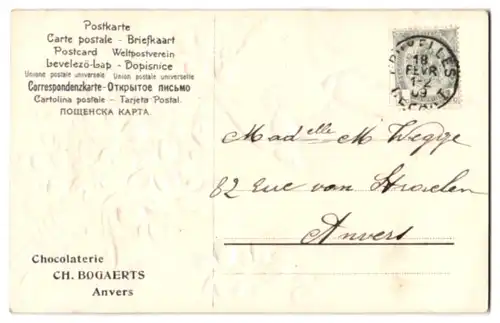 Postkarte
Carte postale - Briefkaart
Postcard Weltpostverein
Levelező-Lap - Dopisnice
Unione postale universale Union postale universelle
Correspondenzkarte - Открытое письмо
Cartolina postale - Tarjeta Postal.
ПОЩЕНСКА КАРТА.
BRUXELLES
18
FEVR
12
09
DEPART
Madelle M Wegge
82 Rue van Straelen
Anvers
Chocolaterie
CH. BOGAERTS
Anvers